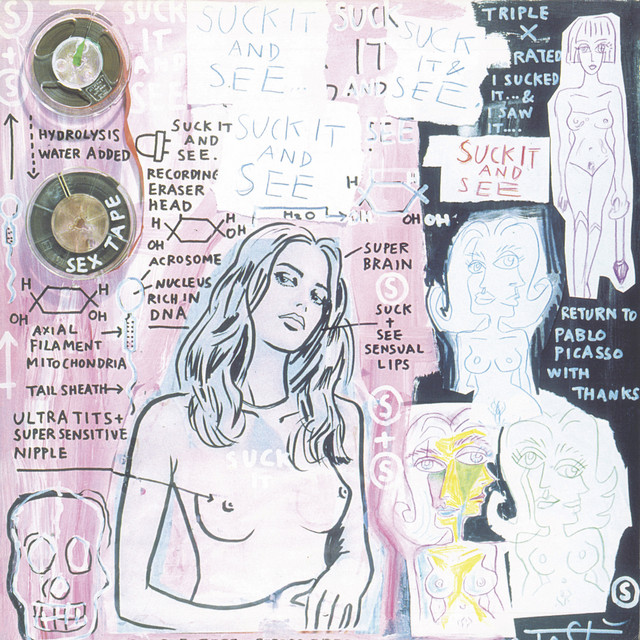 SUCK
IT
AND
SEE
SUCK IT
AND
SEE...
SUCK
IT
AND
SEE
SUCK
IT &
SEE
TRIPLE
X
RATED
I SUCKED
IT...&
I SAW
IT....
S
+
S
HYDROLYSIS
WATER ADDED
SUCK IT
AND
SEE.
RECORDING
ERASER
HEAD
SUCK IT
AND
SEE
SUCK IT
AND
SEE
SEX TAPE
H
H
OH
OH
H2O
H
OH
OH
OH
ACROSOME
NUCLEUS
RICH IN
DNA
SUPER
BRAIN
S
SUCK
+
SEE
SENSUAL
LIPS
H
H
OH
OH
AXIAL
FILAMENT
MITOCHONDRIA
TAIL SHEATH
ULTRA TITS +
SUPER SENSITIVE
NIPPLE
RETURN TO
PABLO
PICASSO
WITH
THANKS
S
+
S
SUCK
IT
S